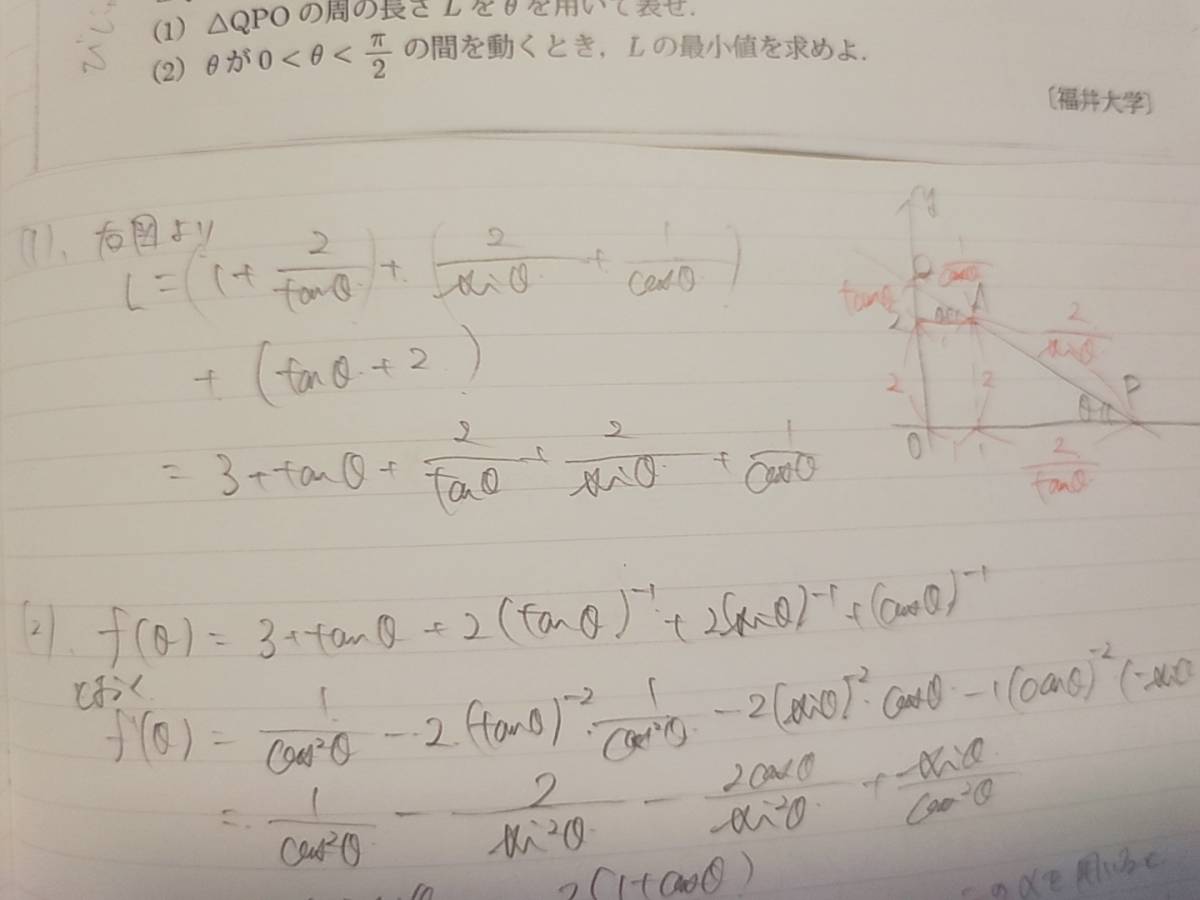 (1) △QPO の周の長さ L を θ を用いて表せ.
(2) θ が 0 < θ < π/2 の間を動くとき, L の最小値を求めよ.
〔福井大学〕
(1). 右図より
L = (1 + 2/tanθ) + (2/sinθ + 1/cosθ)
+ (tanθ + 2)
= 3 + tanθ + 2/tanθ + 2/sinθ + 1/cosθ
y
Q 1/cosθ
tanθ A
2 θ 1 2/sinθ
2 2 P
θ
O 1 1
2/tanθ
(2). f(θ) = 3 + tanθ + 2(tanθ)⁻¹ + 2(sinθ)⁻¹ + (cosθ)⁻¹
とおく
f'(θ) = 1/cos²θ - 2·(tanθ)⁻²·1/cos²θ - 2(sinθ)⁻²·cosθ - 1(cosθ)⁻²(-sinθ
= 1/cos²θ - 2/sin²θ - 2cosθ/sin²θ + sinθ/cos²θ
2(1+cosθ)